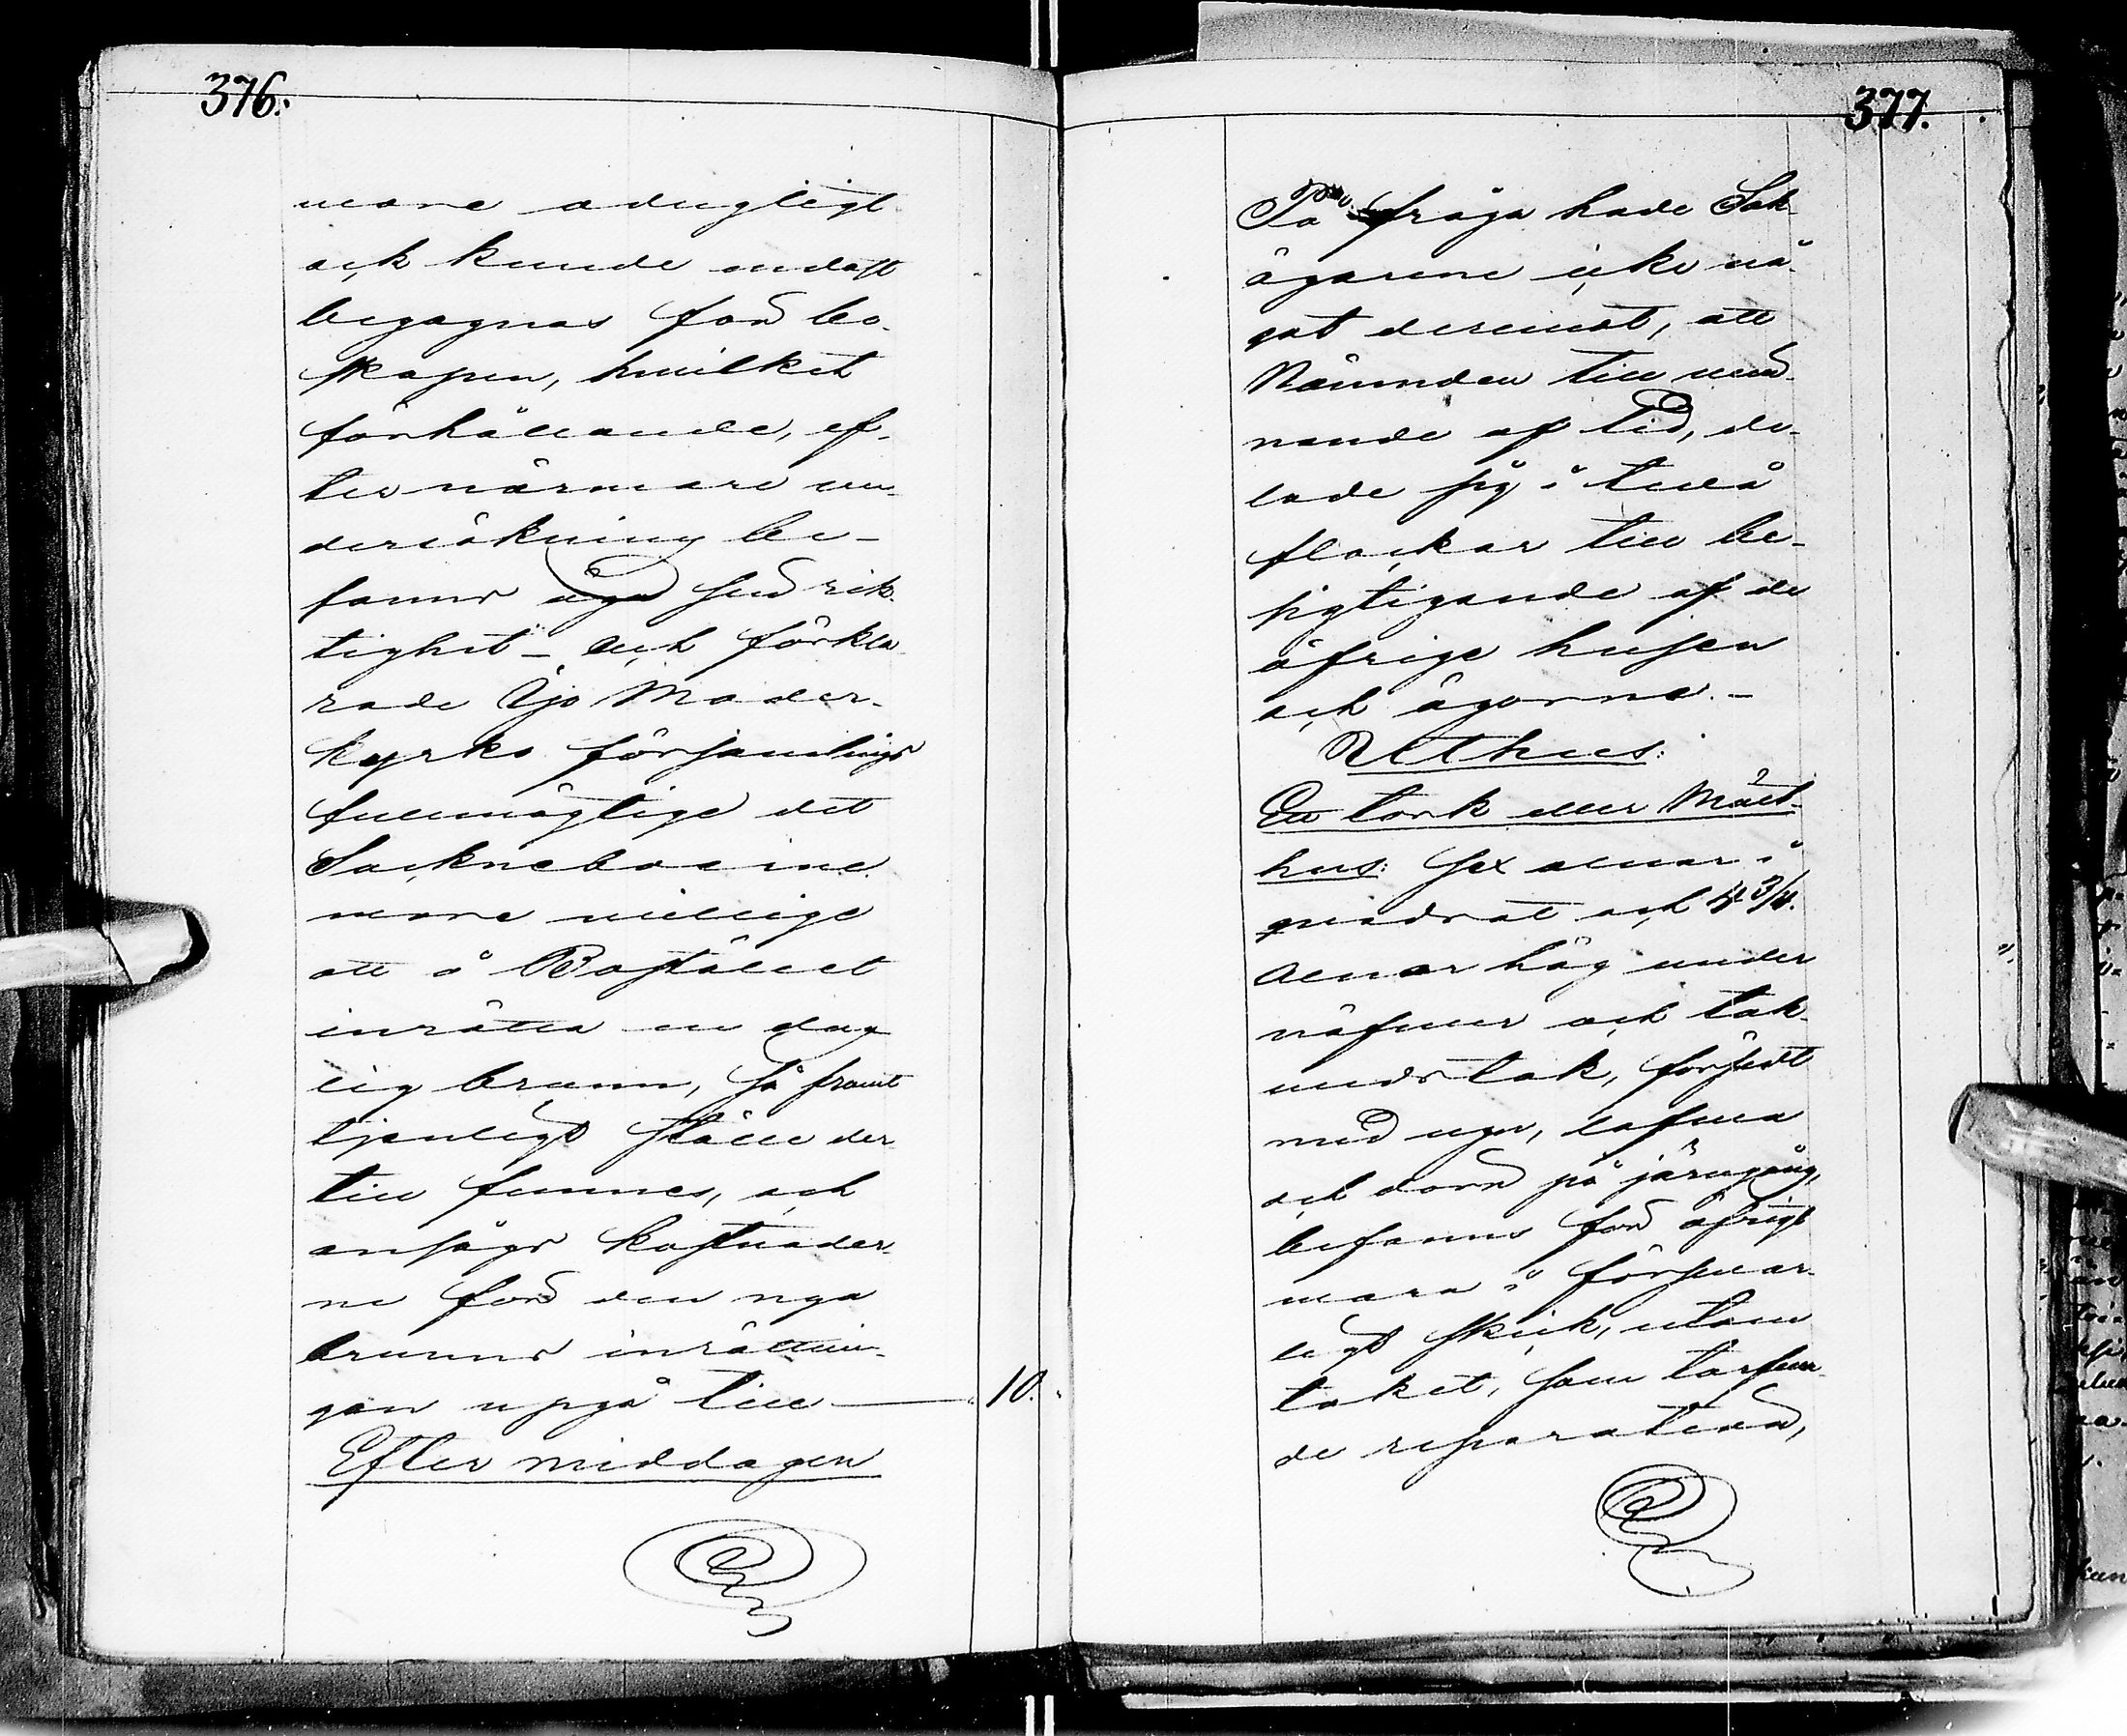 376.
vare odugligt
och kunde endast
begagnas för bo-
skapen, hvilket
förhållande, ef-
ter närmare un-
dersökning be-
fanns äga sin rik-
tighet - och förkla-
rade Ijo Moder-
kyrko församlings
fullmägtige det
Sockneboerne
vore villige
att å Bostället
inrätta en dug-
lig brunn, så framt
tjenligt ställe der
till funnes, och
ansågs kostnader-
ne för den nya
brunns inrättnin-
gen uppgå till — 10.
Efter middagen
377.
På fråga hade Sak-
ägarene icke nå-
got deremot, att
Nämnden till vin-
nande af tid, de-
lade sig i tvenne
flockar till be-
sigtigande af de
öfrige husen
och ägorna.-
Uthus:
En tork eller Mält-
hus: sex alnar i
quadrat och 4 3/4.
alnar hög under
näfver och tak-
vedstak, försedt
med ugn, lafvar
och dörr på järngång,
befanns för öfrigt
vara i försvar-
ligt skick, utom
taket, som tarfva-
de reparation,